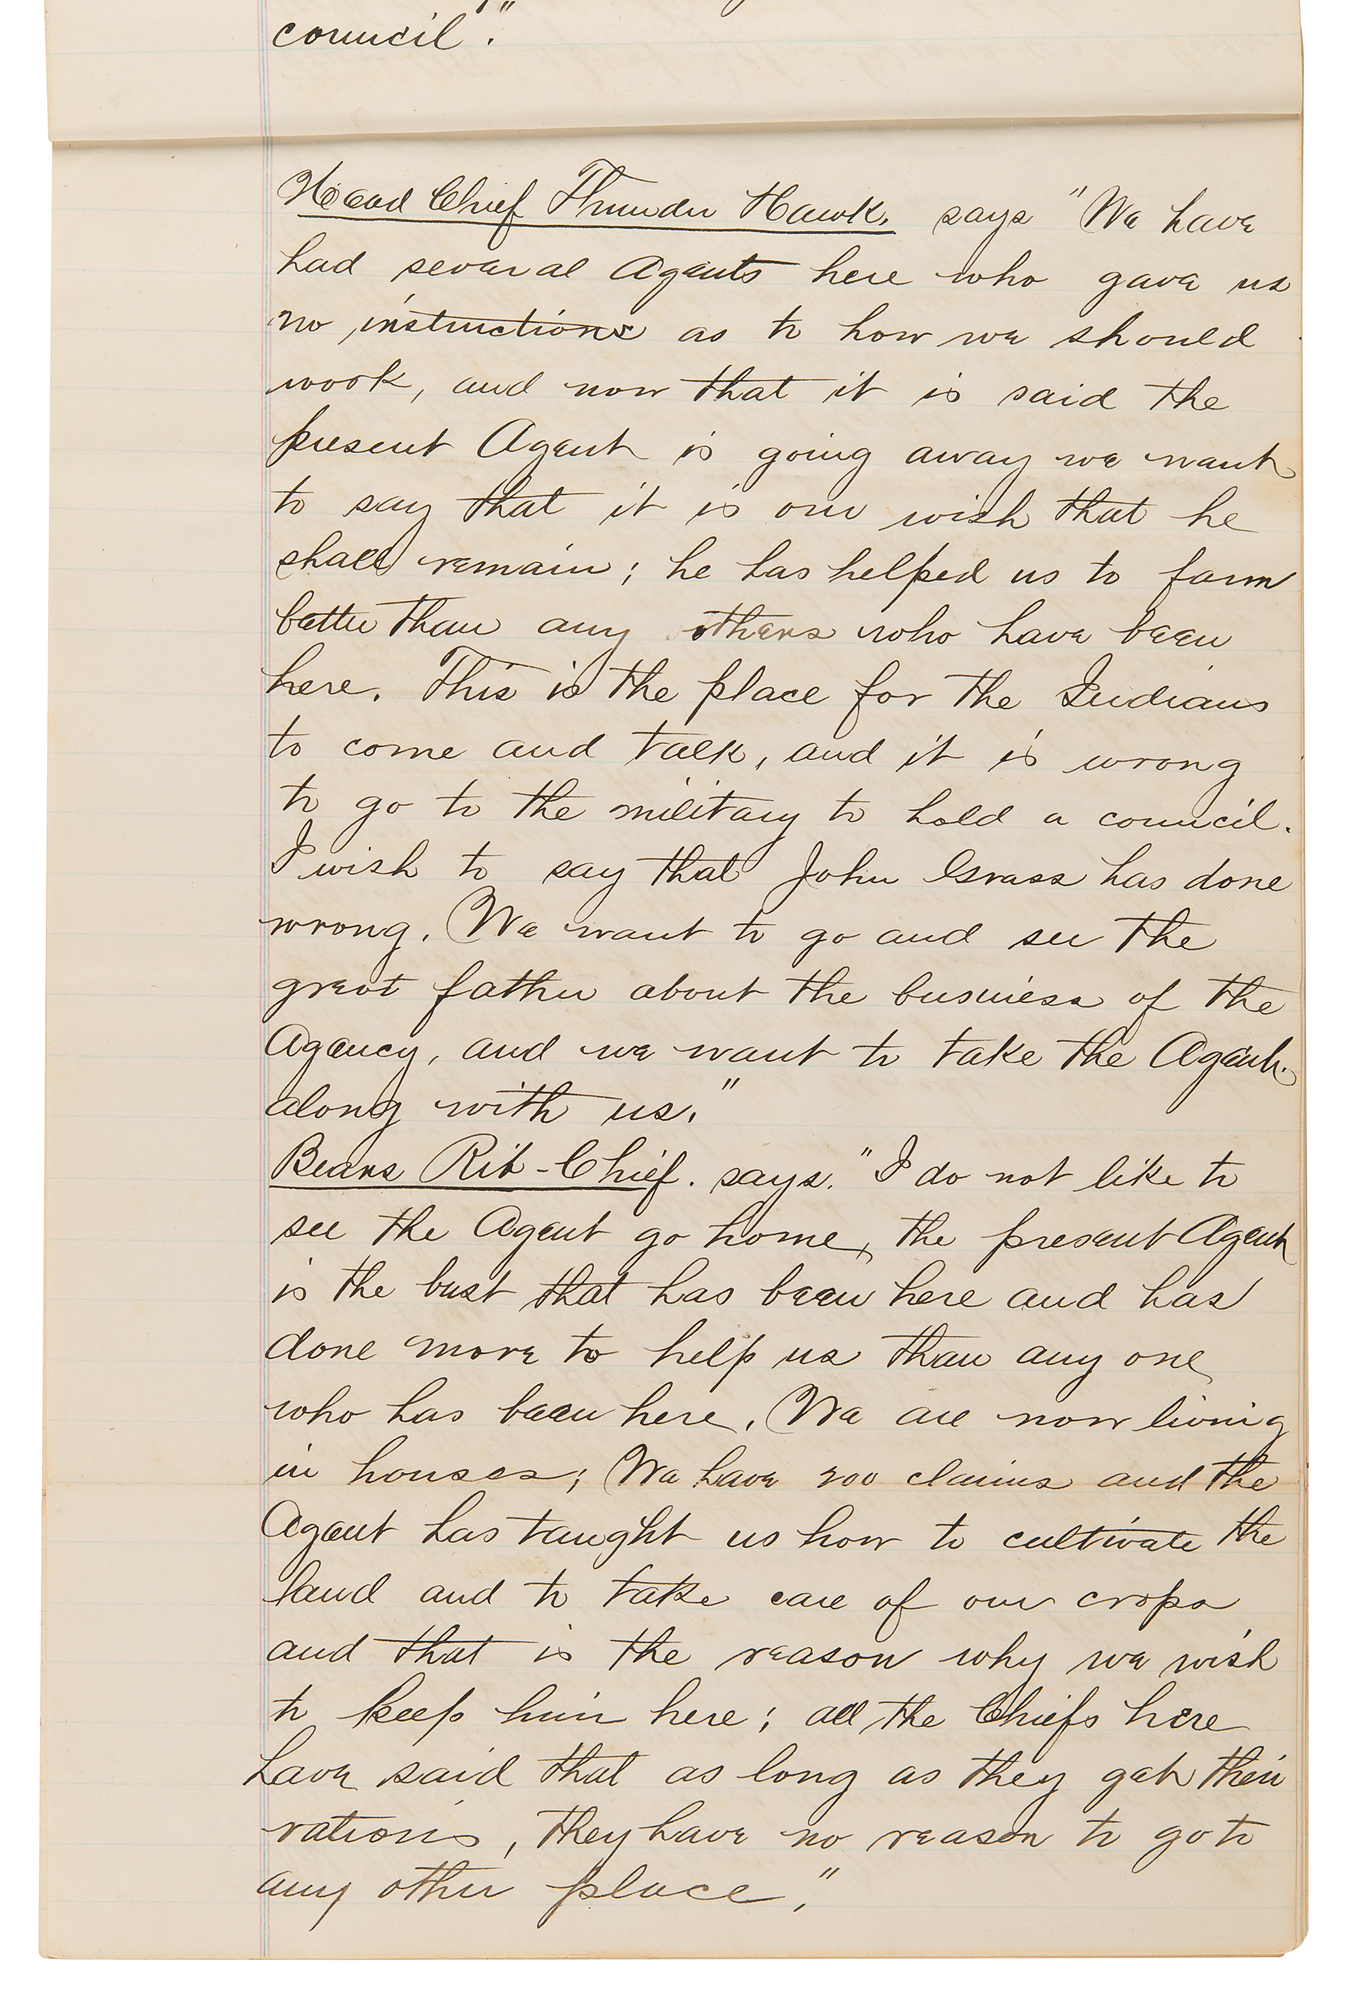 council".
Head Chief Thunder Hawk. says "We have
had several Agents here who gave us
no instructions as to how we should
work, and now that it is said the
present Agent is going away we want
to say that it is our wish that he
shall remain; he has helped us to farm
better than any others who have been
here. This is the place for the Indians
to come and talk, and it is wrong
to go to the military to hold a council.
I wish to say that John Grass has done
wrong. We want to go and see the
great father about the business of the
Agency, and we want to take the Agent
along with us."
Bears Rib-Chief. says. "I do not like to
see the Agent go home, the present Agent
is the best that has been here and has
done more to help us than any one
who has been here. We are now living
in houses; We have 200 claims and the
Agent has taught us how to cultivate the
land and to take care of our crops
and that is the reason why we wish
to keep him here; all the Chiefs here
have said that as long as they get their
rations, they have no reason to go to
any other place."